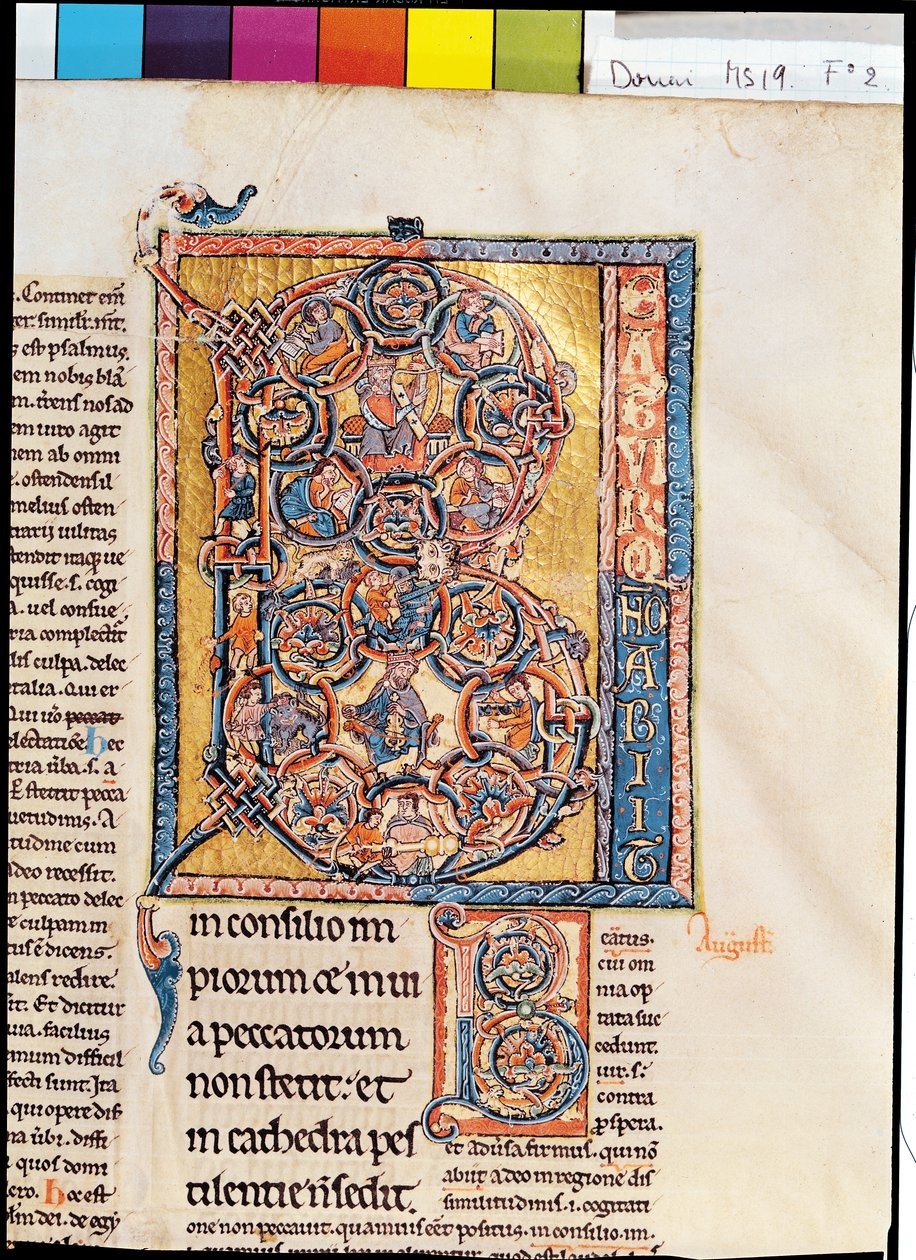 Douai MS 19. F° 2.
B
EATVS VIR Q
HO ABIIT
in consilio im
piorum & in ui
a peccatorum
non stetit: et
in cathedra pes
tilentie n̄ sedit.
B
eatus.
cui om
nia op
tata suc
cedunt.
uir. s.
contra
ꝓspera.
et aduersa firmus. qui nō
abiit a deo in regione dis
similitudinis. i. cogitati
one non peccauit. quamuis eēt positus. in consilio im.
August̄
. Continet enī
s est psalmus.
em nobis blā
em uiro agit
nem ab omni
. ostendens il
melius osten
uilitas
tendit itaq; ue
quisse. s. cogi
a. uel consue
ria complectit̄
lis culpa. delec
talia. Qui er
Qui uō peccat
electatiōe hec
tria ūba. s. a
. Et stetit pecca
uetudinis. A
tudine cum
adeo recessit.
n peccato delec
e culpam in
dicens.
alens redire.
it. Et dicitur
uia. facilius
mum difficil
fecti sunt. Ita
qui opere dif
na ūbi. diffi
quos domi
ero. hoc est
dei. de egy